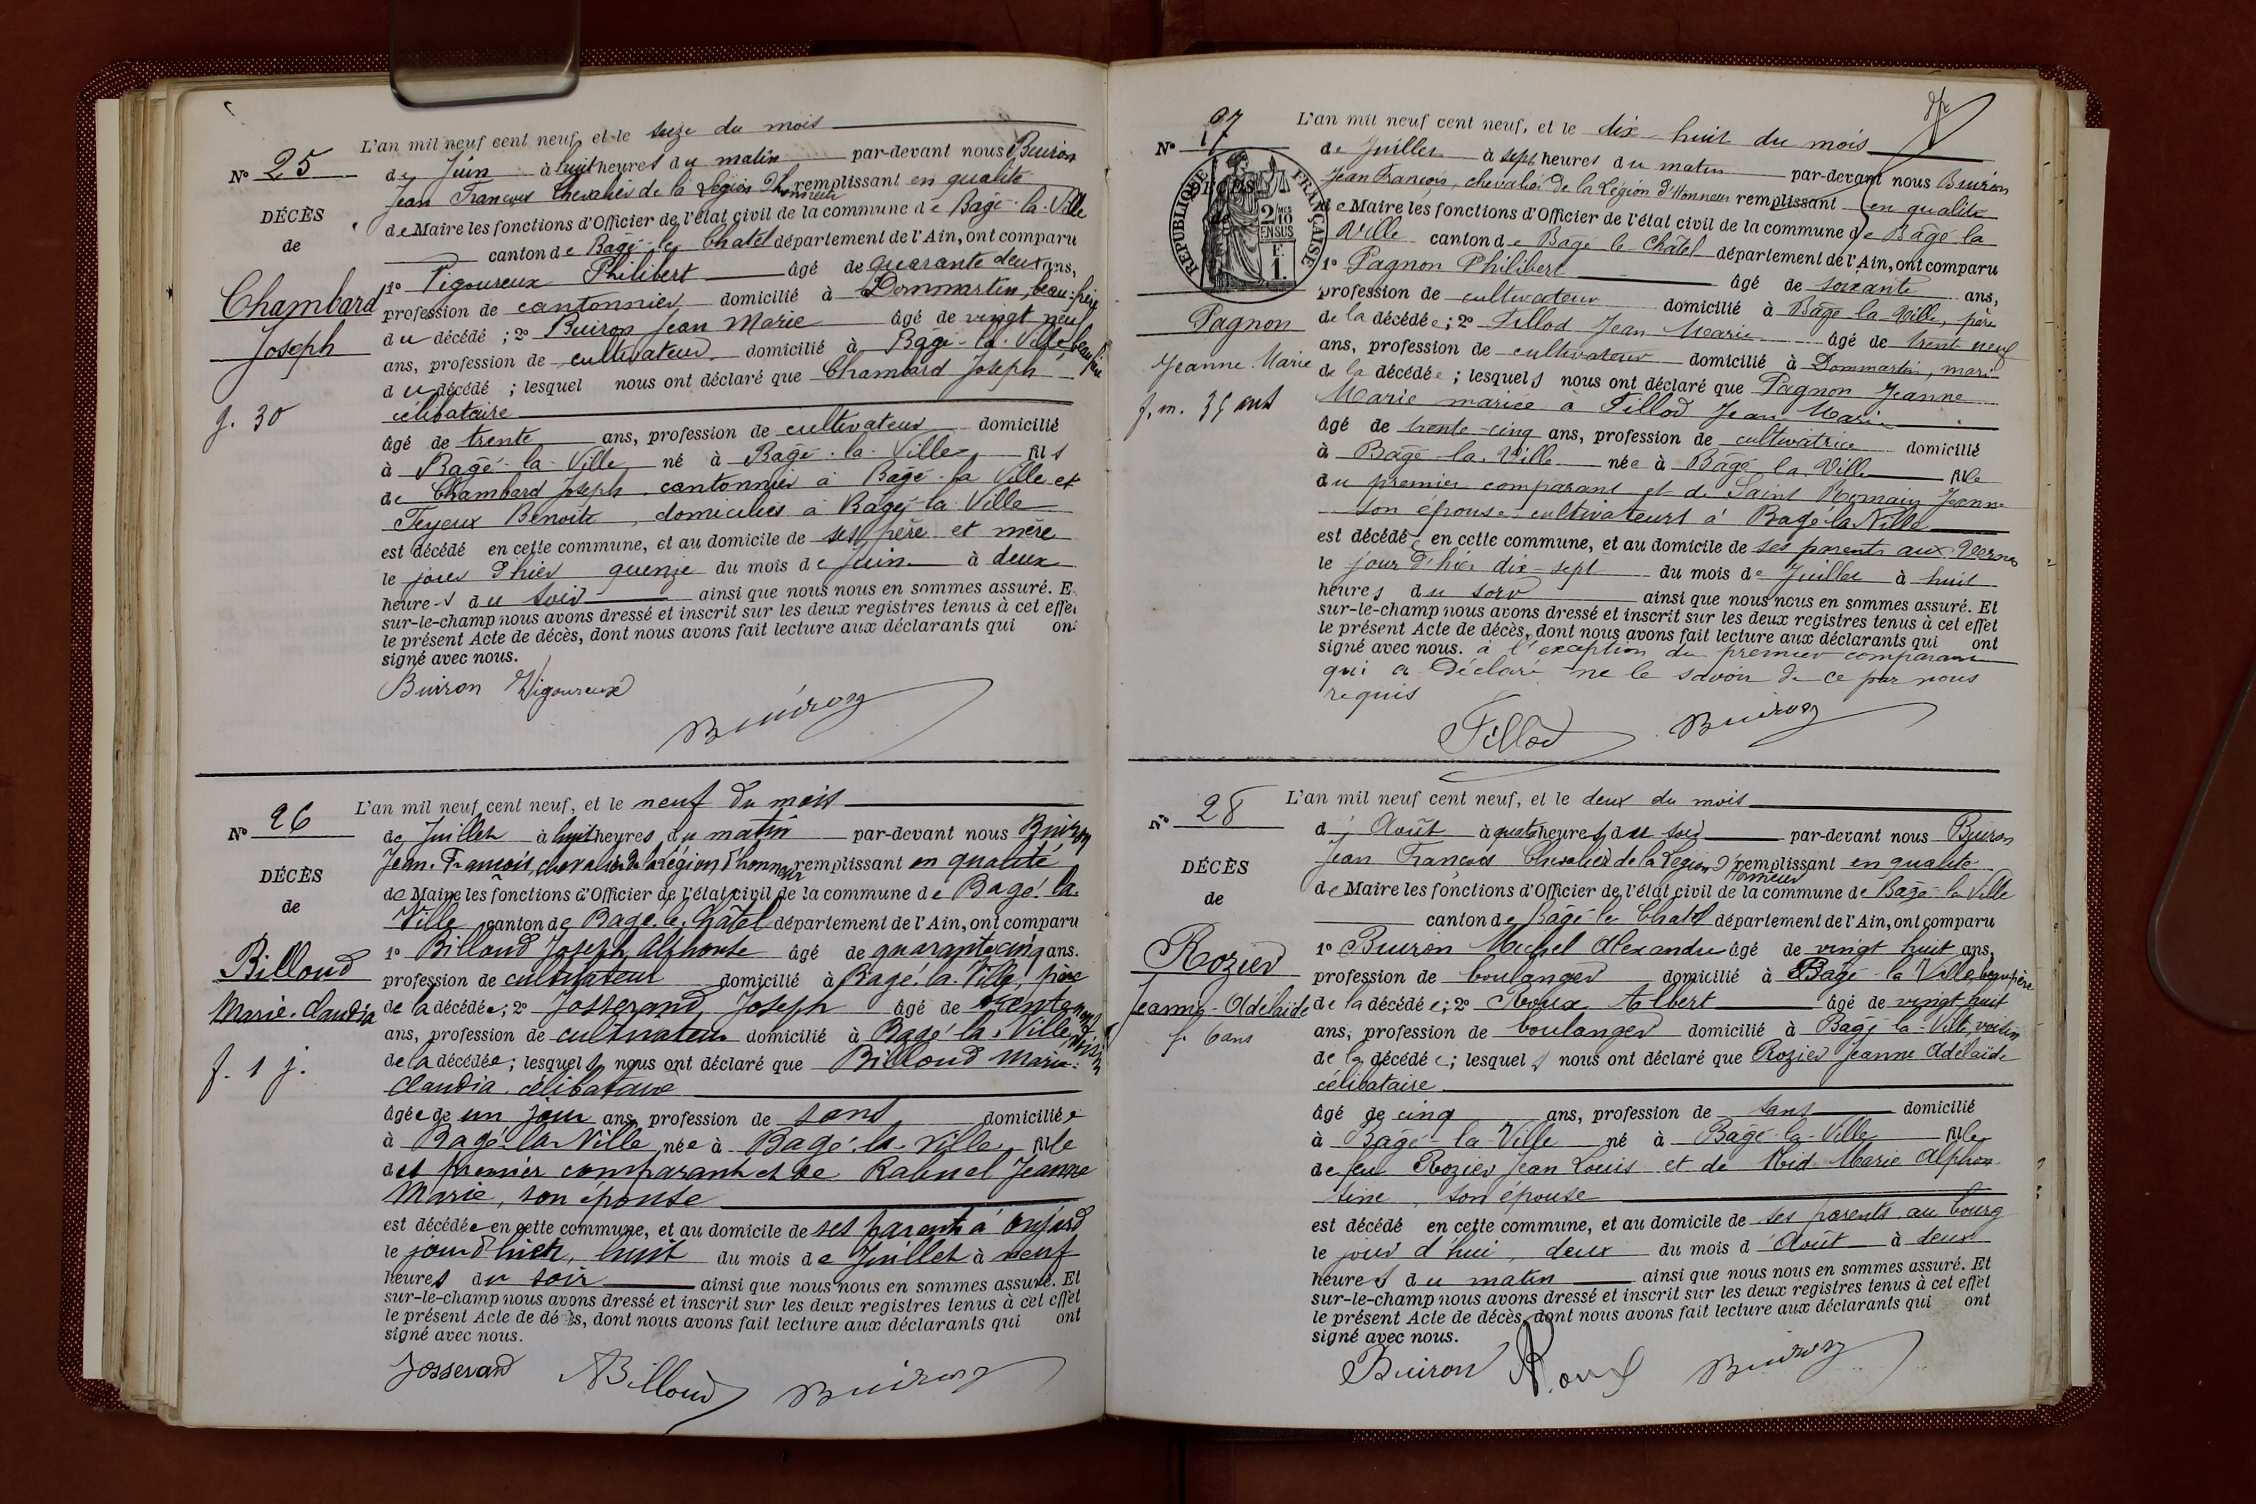 L'an mil neuf cent neuf, et le seize du mois
N° 25
de Juin à huit heures du matin, par-devant nous Buiron
Jean François Chevalier de la Légion d'honneur remplissant en qualité
DÉCÈS
de Maire les fonctions d'Officier de l'état civil de la commune de Bâgé-la-Ville
de
canton de Bâgé-le-Chatel département de l'Ain, ont comparu
1° Vigoureux Philibert âgé de quarante deux ans,
Chambard
profession de cantonnier domicilié à Dommartin, beau-frère
du décédé ; 2° Buiron Jean Marie âgé de vingt neuf
Joseph
ans, profession de cultivateur domicilié à Bâgé-la-Ville beau frère
du décédé ; lesquel nous ont déclaré que Chambard Joseph
célibataire
g. 30
âgé de trente ans, profession de cultivateur domicilié
à Bâgé-la-Ville né à Bâgé-la-Ville fils
de Chambard Joseph cantonnier à Bâgé-la Ville et
Teyeux Benoite, domiciliés à Bâgé-la-Ville
est décédé en cette commune, et au domicile de ses père et mère
le jour d'hier quinze du mois de Juin à deux
heures du soir ainsi que nous nous en sommes assuré. E
sur-le-champ nous avons dressé et inscrit sur les deux registres tenus à cet effet
le présent Acte de décès, dont nous avons fait lecture aux déclarants qui ont
signé avec nous.
Buiron Vigoureux
Buiron
L'an mil neuf cent neuf, et le neuf du mois
N° 26
de Juillet à huit heures du matin par-devant nous Buiron
Jean-François, chevalier de la Légion d'honneur remplissant en qualité
DÉCÈS
de Maire les fonctions d'Officier de l'état civil de la commune de Bagé-la-
de
Ville canton de Bagé-le-Châtel département de l'Ain, ont comparu
1° Billoud Joseph Alphonse âgé de quarante cinq ans.
Billoud
profession de cultivateur domicilié à Bagé-la-Ville, père
Marie-Claudia
de la décédée; 2° Josserand Joseph âgé de trente neuf
ans, profession de cultivateur domicilié à Bagé-la-Ville, voisin
de la décédée; lesquels nous ont déclaré que Billoud Marie-
f. 1 j.
Claudia, célibataire
âgée de un jour ans, profession de sans domiciliée
à Bagé-la-Ville née à Bagé-la-Ville fille
des premier comparant et de Rabuel Jeanne
Marie, son épouse
est décédée en cette commune, et au domicile de ses parents à
le jour d'hier, huit du mois de Juillet à neuf
heures du soir ainsi que nous nous en sommes assuré. Et
sur-le-champ nous avons dressé et inscrit sur les deux registres tenus à cet effet
le présent Acte de décès, dont nous avons fait lecture aux déclarants qui ont
signé avec nous.
Josserand ABilloud Buiron
L'an mil neuf cent neuf, et le dix-huit du mois
N° 27
de Juillet à sept heures du matin par-devant nous Buiron
Jean François, chevalier de la Légion d'Honneur remplissant en qualité
de Maire les fonctions d'Officier de l'état civil de la commune de Bâgé-la
Ville canton de Bâgé-le-Châtel département de l'Ain, ont comparu
RÉPUBLIQUE FRANÇAISE
2/10 EN SUS
F. 1.
1° Pagnon Philibert âgé de soixante ans,
profession de cultivateur domicilié à Bâgé la Ville, père
Pagnon
de la décédée; 2° Fillod Jean Marie âgé de trente neuf
Jeanne Marie
ans, profession de cultivateur domicilié à Dommartin, mari
de la décédée; lesquels nous ont déclaré que Pagnon Jeanne
f. m. 35 ans
Marie mariée à Fillod Jean Marie
âgé de trente-cinq ans, profession de cultivatrice domicilié
à Bâgé-la-Ville née à Bâgé-la-Ville fille
du premier comparant et de Saint Romain Jeanne
son épouse cultivateurs à Bagé-la-Ville
est décédée en cette commune, et au domicile de ses parents aux
le jour d'hier dix-sept du mois de Juillet à huit
heures du soir ainsi que nous nous en sommes assuré. Et
sur-le-champ nous avons dressé et inscrit sur les deux registres tenus à cet effet
le présent Acte de décès, dont nous avons fait lecture aux déclarants qui ont
signé avec nous. à l'exception du premier comparant
qui a déclaré ne le savoir de ce par nous
requis
Fillod Buiron
L'an mil neuf cent neuf, et le deux du mois
N° 28
d'Août à quatre heures du soir par-devant nous Buiron
Jean François Chevalier de la Légion d'honneur remplissant en qualité
DÉCÈS
de Maire les fonctions d'Officier de l'état civil de la commune de Bâgé-la-Ville
de
canton de Bâgé-le-Chatel département de l'Ain, ont comparu
1° Buiron Michel Alexandre âgé de vingt huit ans,
Rozier
profession de boulanger domicilié à Bâgé-la Ville, beau-père
Jeanne-Adélaïde
de la décédée; 2° Roux Albert âgé de vingt huit
ans, profession de boulanger domicilié à Bâgé-la-Ville, voisin
f. 6 ans
de la décédée; lesquels nous ont déclaré que Rozier Jeanne Adélaïde
célibataire
âgé de cinq ans, profession de sans domicilié
à Bâgé-la-Ville né à Bâgé-la-Ville fille
de feu Rozier Jean Louis et de Marie Alphon-
sine, son épouse
est décédé en cette commune, et au domicile de ses parents au bourg
le jour d'hui, deux du mois d'Août à deux
heures du matin ainsi que nous nous en sommes assuré. Et
sur-le-champ nous avons dressé et inscrit sur les deux registres tenus à cet effet
le présent Acte de décès, dont nous avons fait lecture aux déclarants qui ont
signé avec nous.
Buiron Roux Buiron